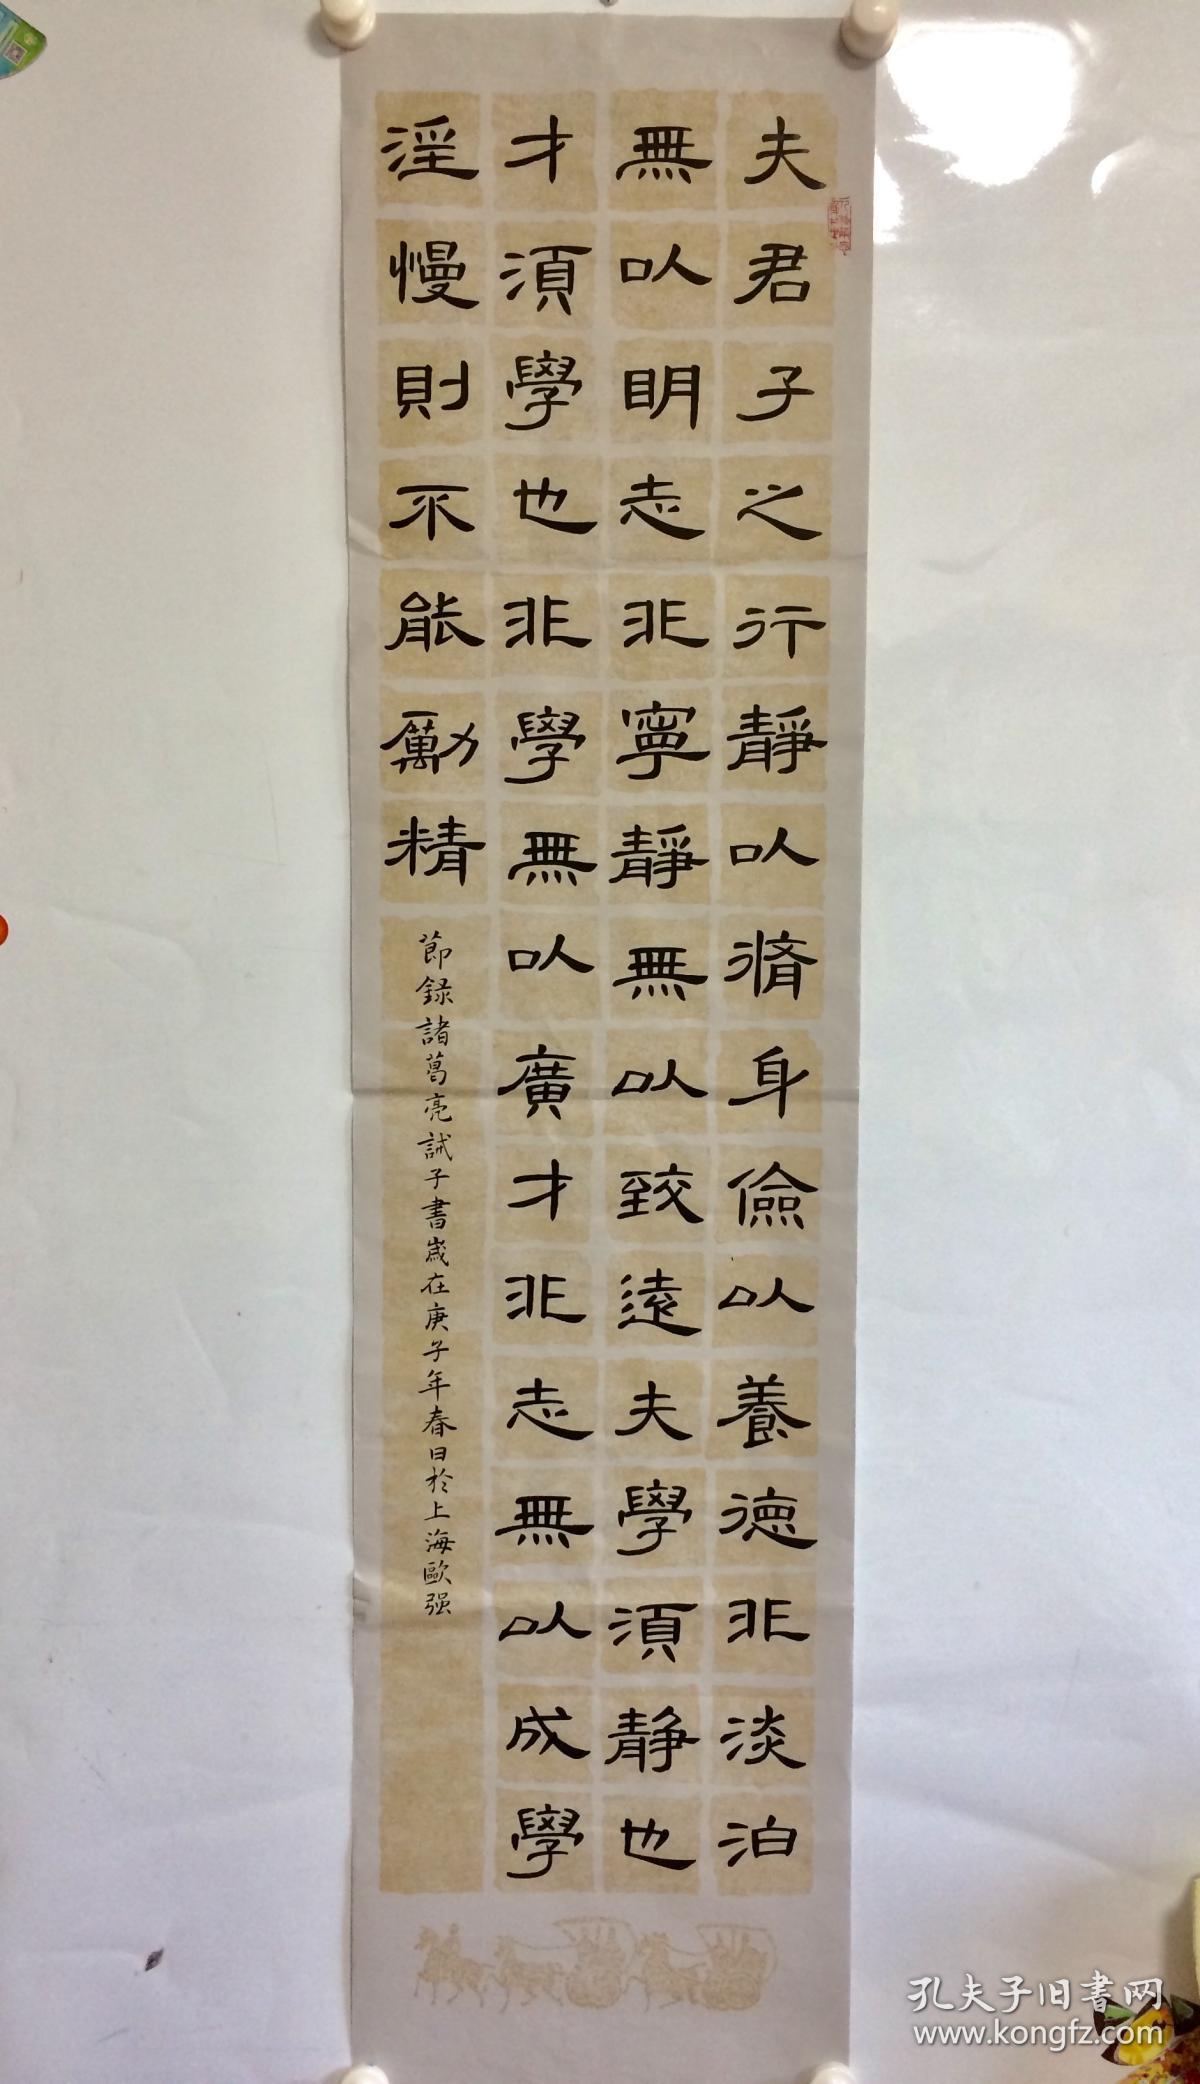 夫君子之行靜以脩身儉以養德非淡泊
無以明志非寧靜無以致遠夫學須静也
才須學也非學無以廣才非志無以成學
淫慢則不能勵精
節録諸葛亮誡子書歲在庚子年春日於上海歐强
孔夫子旧书网
www.kongfz.com